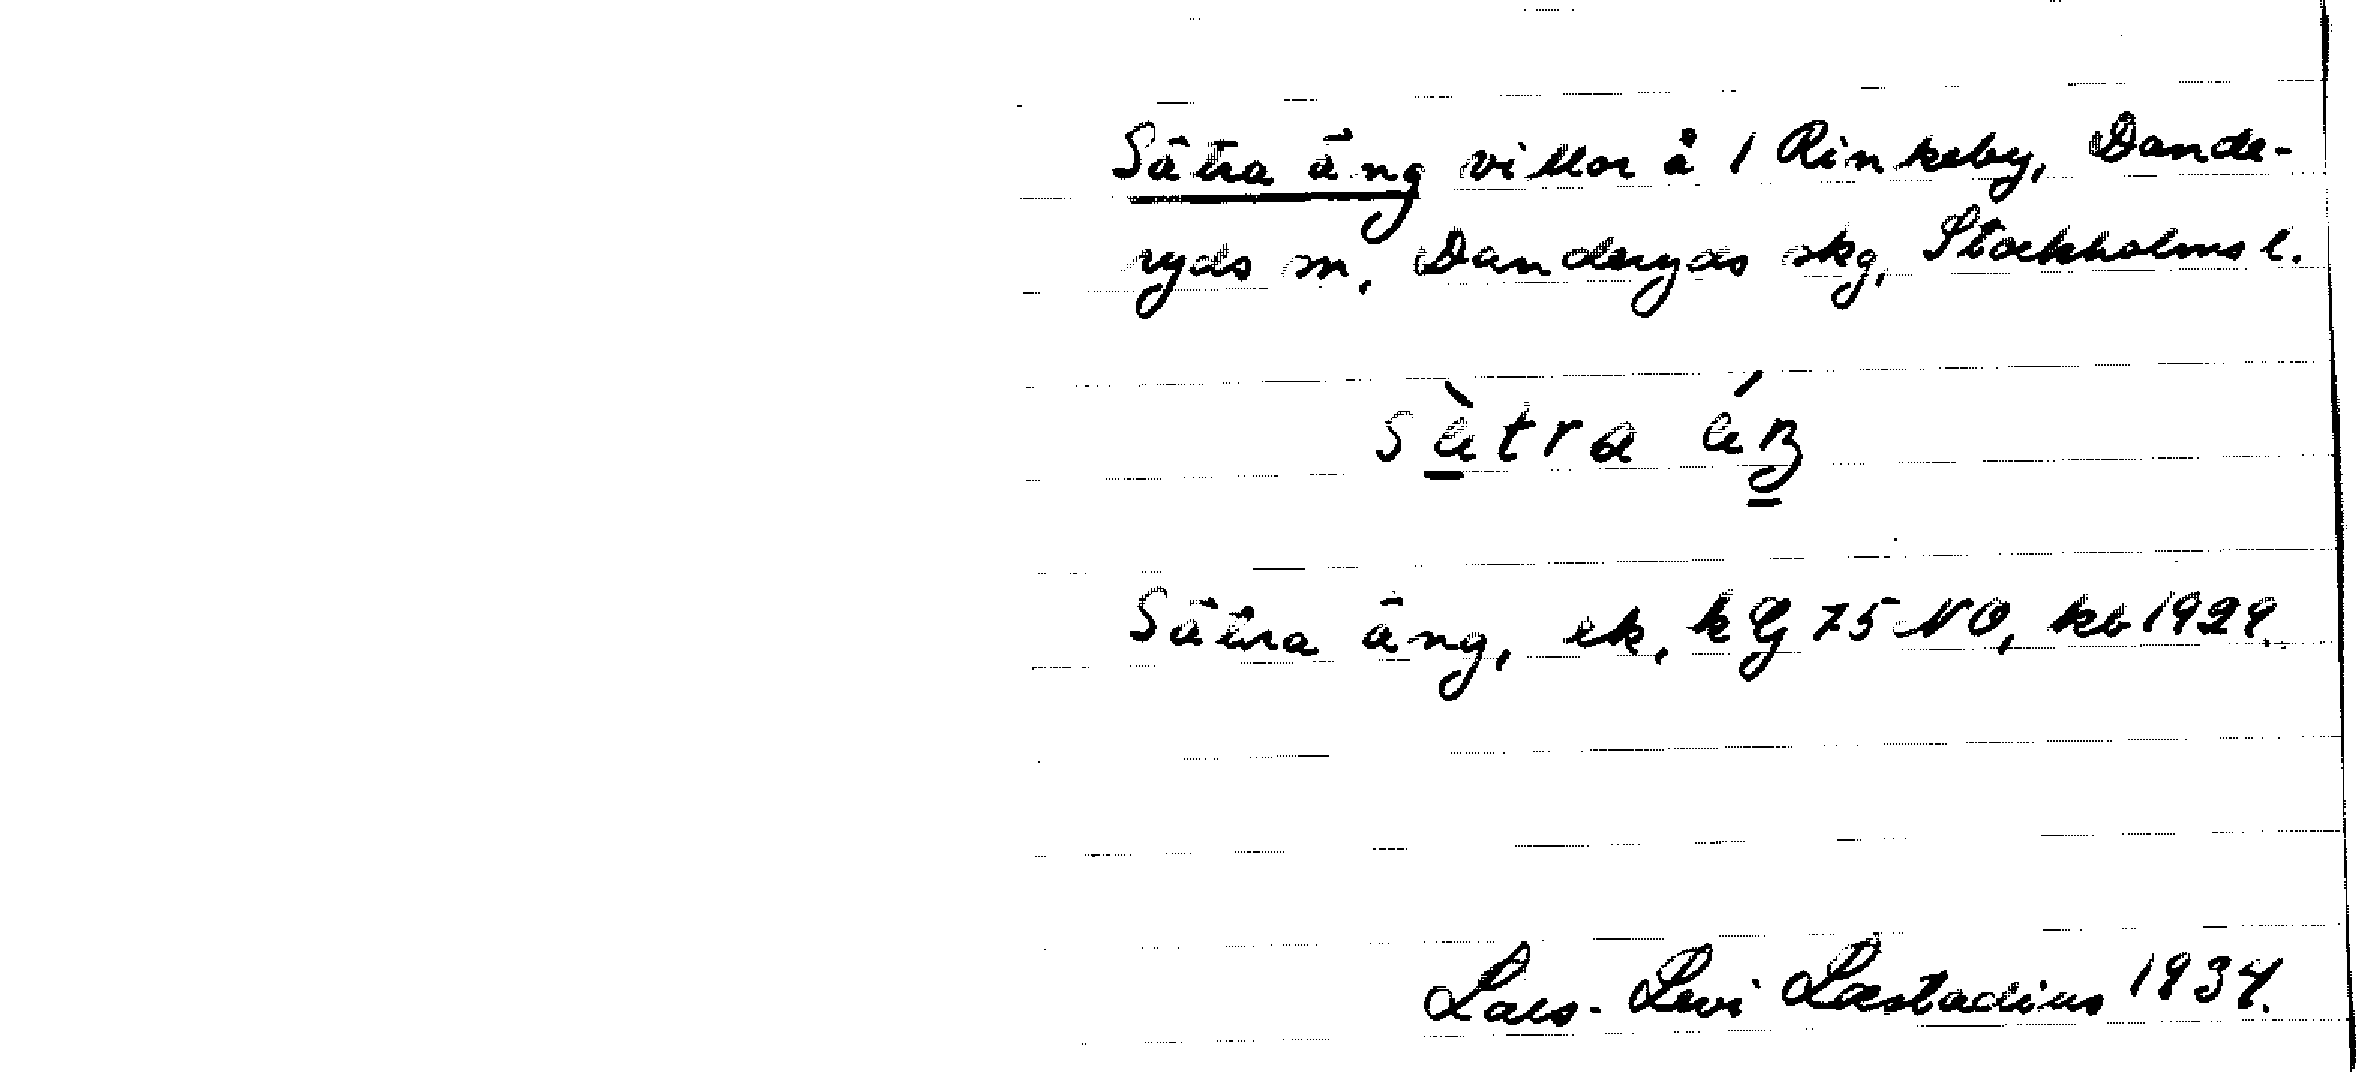 Sätra äng villor å 1 Rinkeby, Dande-
ryds sn, Danderyds skg, Stockholms l.
sàtra áŋ
Sätra äng, ek, k Bl 75 NO, kb 1929.
Lars-Levi Læstadius 1934.